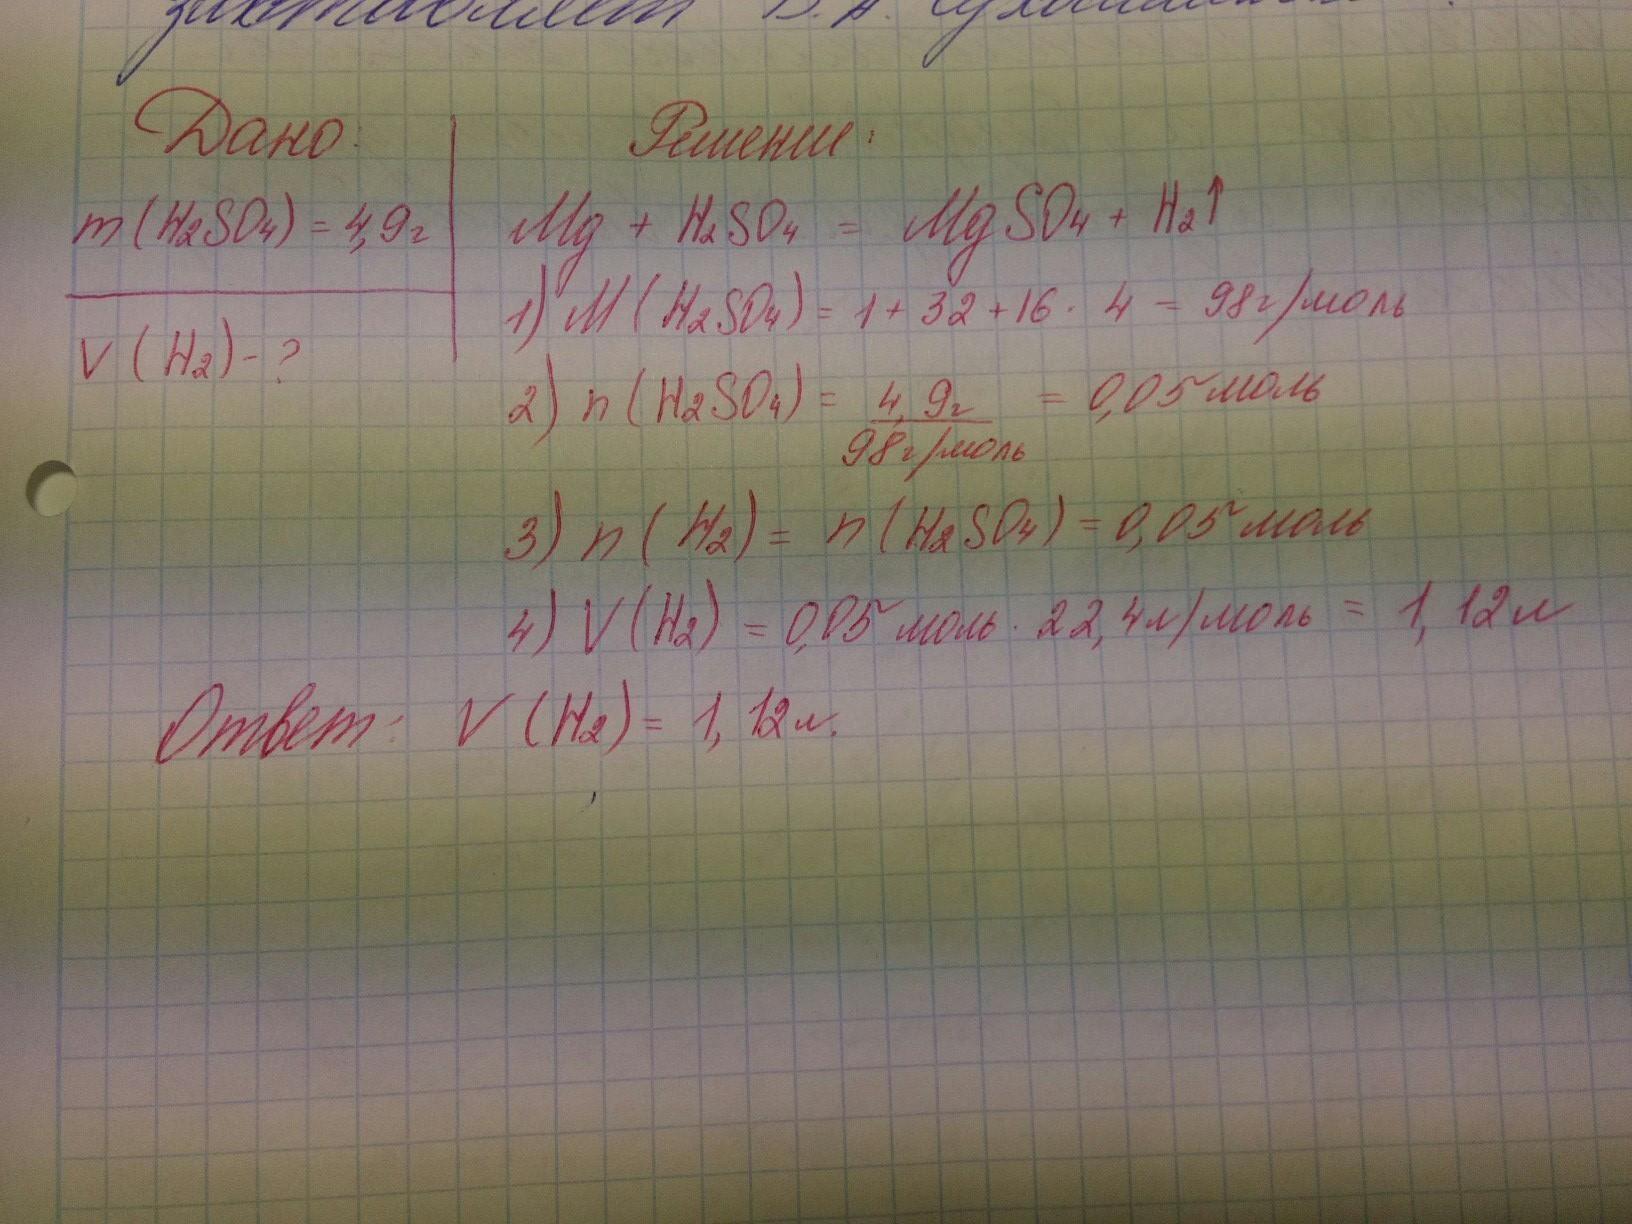 В. А.
Дано:
Решение:
m(H₂SO₄) = 4,9г
V(H₂) - ?
Mg + H₂SO₄ = MgSO₄ + H₂↑
1) M(H₂SO₄) = 1 + 32 + 16 · 4 = 98г/моль
2) n(H₂SO₄) = 4,9г / 98г/моль = 0,05 моль
3) n(H₂) = n(H₂SO₄) = 0,05 моль
4) V(H₂) = 0,05 моль · 22,4л/моль = 1,12л
Ответ: V(H₂) = 1,12л.